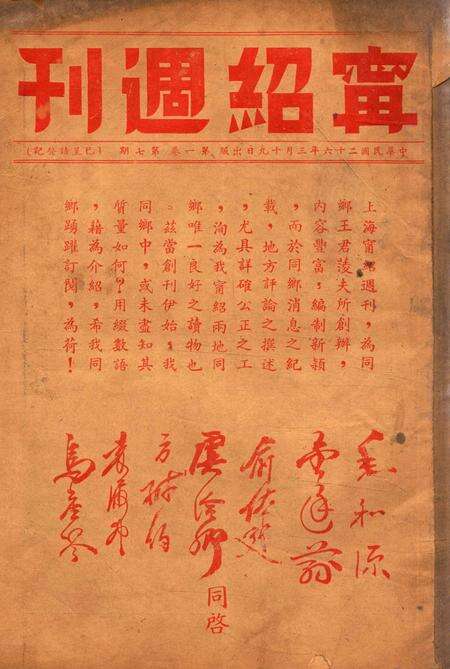 甯紹週刊
中華民國二十六年三月十九日出版 第一卷 第七期 (已呈請登記)
上海甯紹週刊,為同
鄉王君羨夫所創辦,
內容豐富,編制新穎
,而於同鄉消息之紀
載,地方評論之撰述
,尤具詳確公正之工
,洵為我甯紹兩地同
鄉唯一良好之讀物也
。茲當創刊伊始,我
同鄉中,或未盡知其
質量如何?用綴數語
,藉為介紹,希我同
鄉踴躍訂閱,為荷!
毛和源
俞佐廷
虞洽卿
方椒伯
烏崖琴
同啓